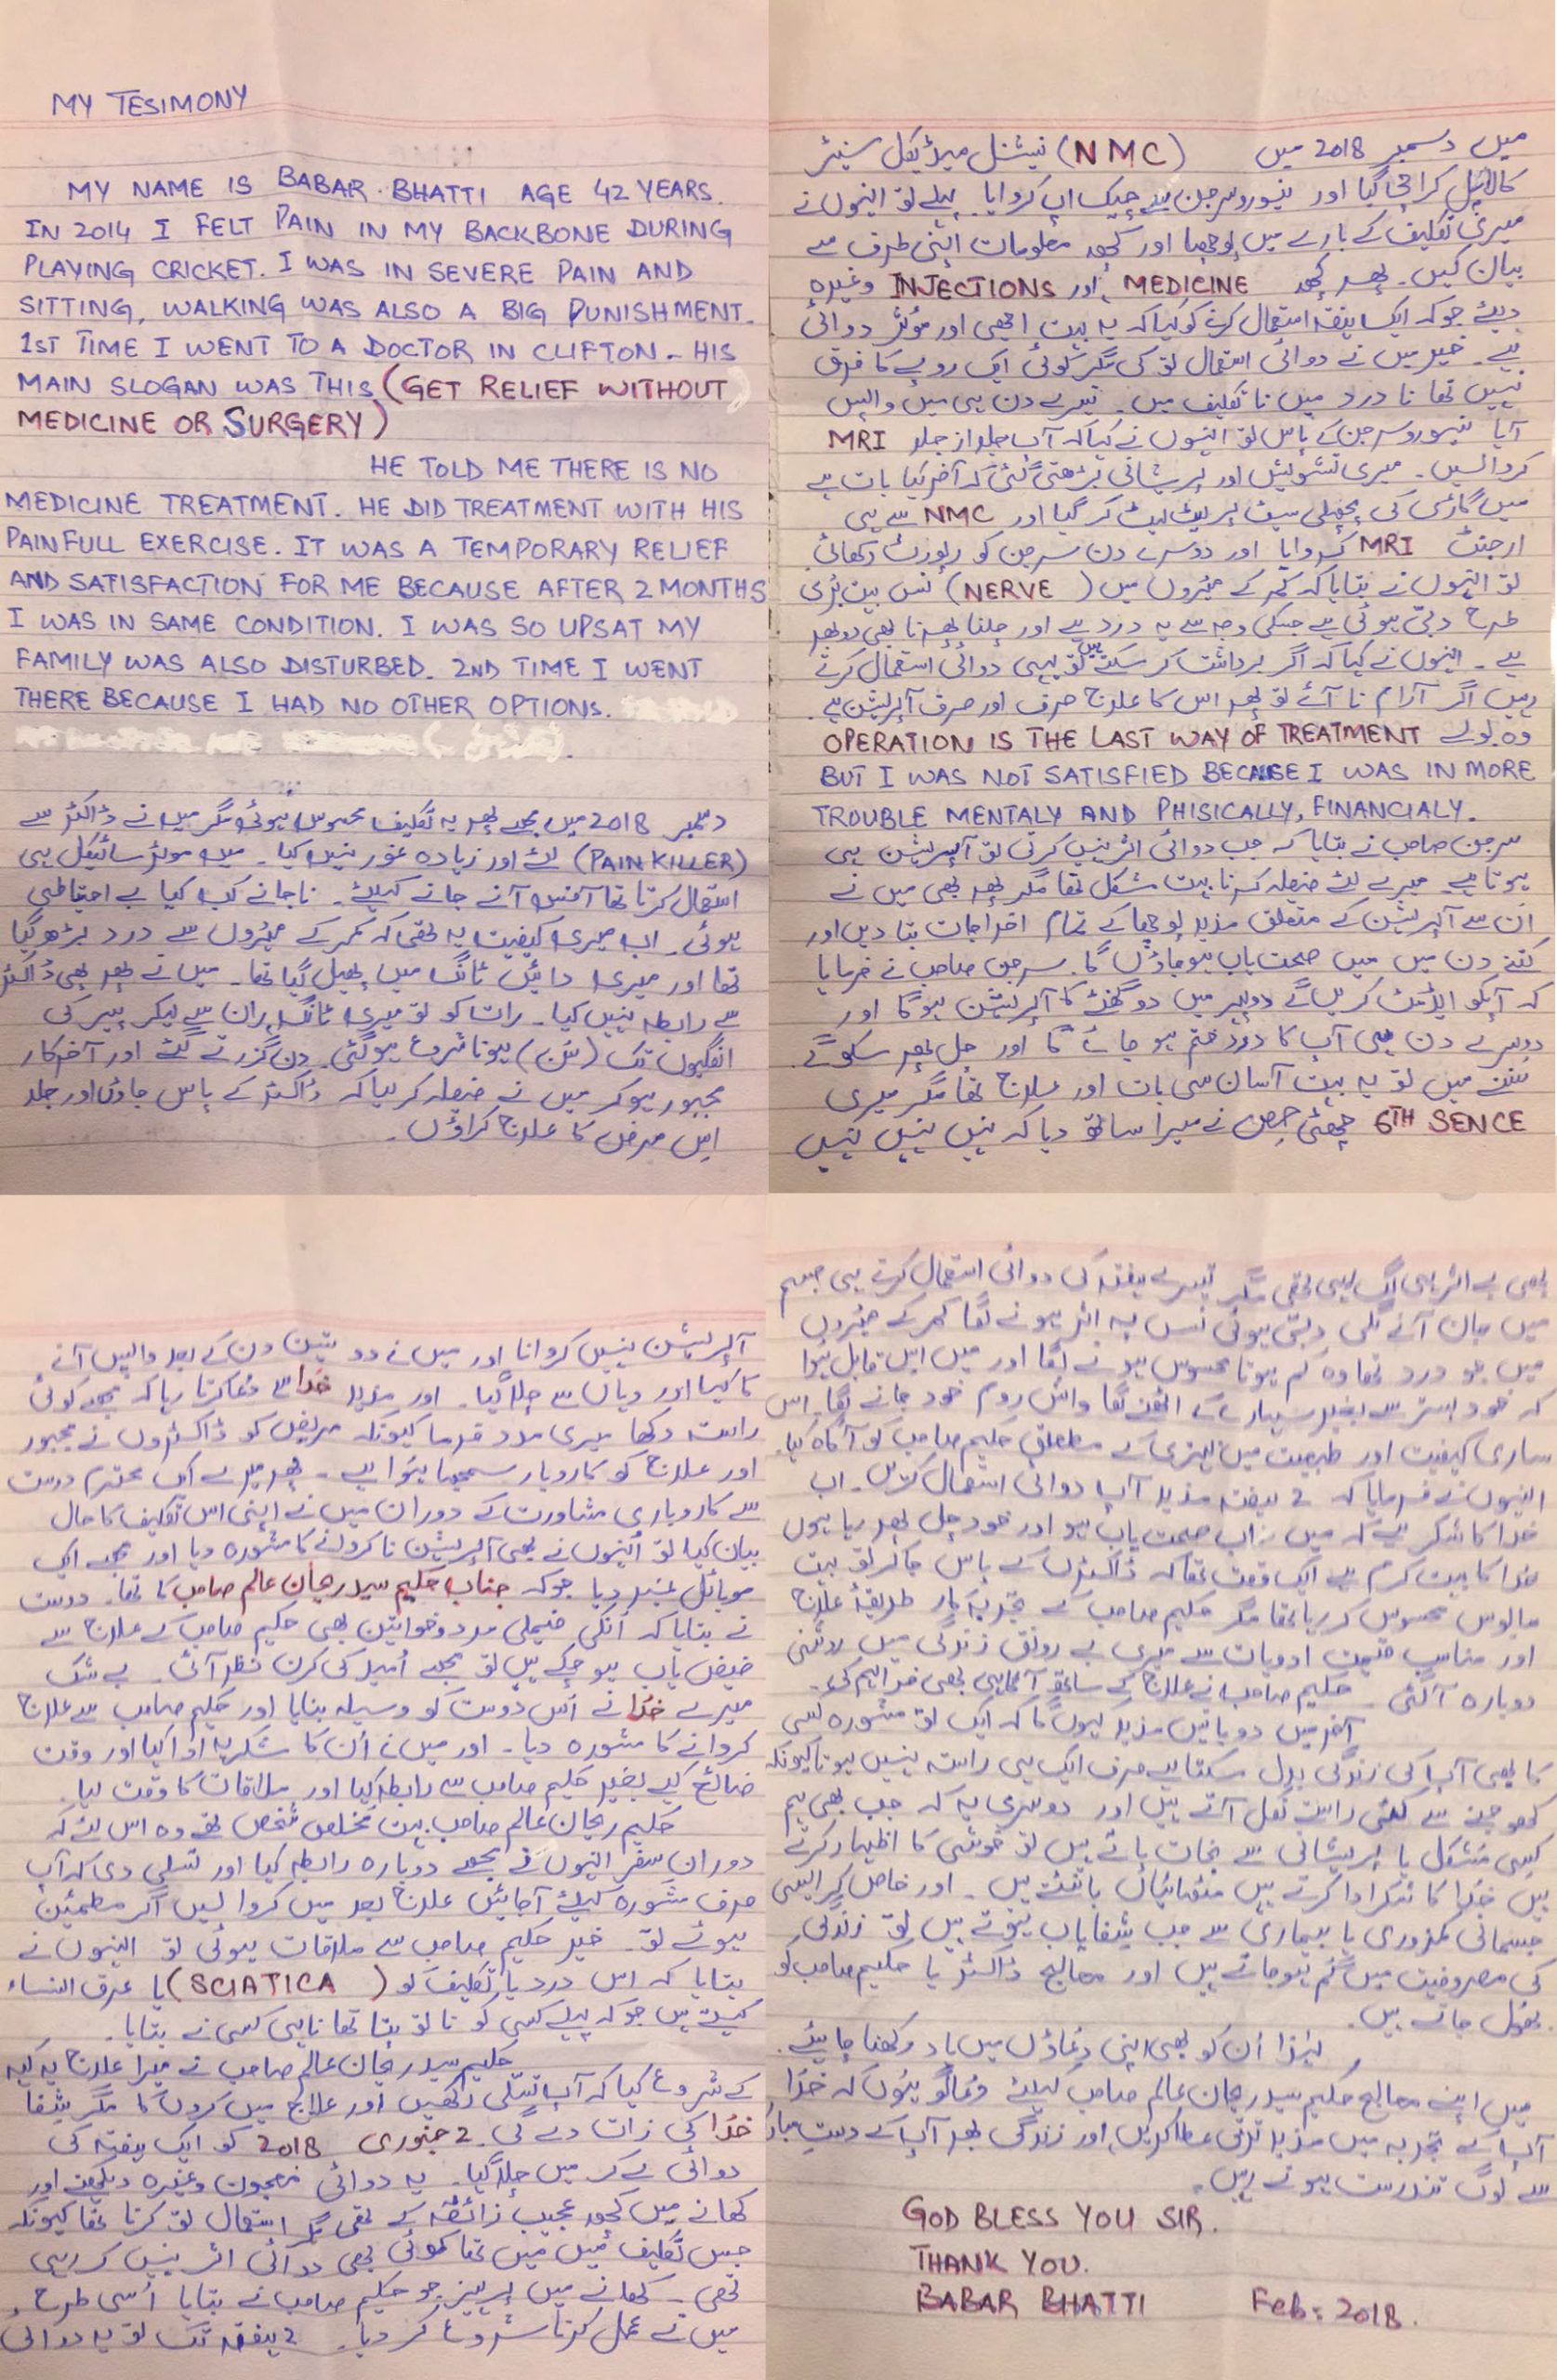 MY TESIMONY
MY NAME IS BABAR. BHATTI AGE 42 YEARS.
IN 2014 I FELT PAIN IN MY BACKBONE DURING
PLAYING CRICKET. I WAS IN SEVERE PAIN AND
SITTING, WALKING WAS ALSO A BIG PUNISHMENT.
1ST TIME I WENT TO A DOCTOR IN CLIFTON - HIS
MAIN SLOGAN WAS THIS (GET RELIEF WITHOUT
MEDICINE OR SURGERY)
HE TOLD ME THERE IS NO
MEDICINE TREATMENT. HE DID TREATMENT WITH HIS
PAINFULL EXERCISE. IT WAS A TEMPORARY RELIEF
AND SATISFACTION FOR ME BECAUSE AFTER 2 MONTHS
I WAS IN SAME CONDITION. I WAS SO UPSAT MY
FAMILY WAS ALSO DISTURBED. 2ND TIME I WENT
THERE BECAUSE I HAD NO OTHER OPTIONS.
دسمبر 2018 میں مجھے پھر یہ تکلیف محسوس ہوئی مگر میں نے ڈاکٹر سے
(PAIN KILLER) لئے اور زیادہ غور نہیں کیا۔ میں موٹر سائیکل ہی
استعمال کرتا تھا آفس آنے جانے کیلئے۔ ناجانے کب کیا بے احتیاطی
ہوئی۔ اب میری کیفیت یہ تھی کہ کمر کے مہروں سے درد بڑھ گیا
تھا اور میری دائیں ٹانگ میں پھیل گیا تھا۔ میں نے پھر بھی ڈاکٹر
سے رابطہ نہیں کیا۔ رات کو تو میری ٹانگ ران سے لیکر پیر کی
انگلیوں تک (سُن) ہونا شروع ہوگئی۔ دن گزرتے گئے اور آخرکار
مجبور ہوکر میں نے فیصلہ کر لیا کہ ڈاکٹر کے پاس جاؤں اور جلد
اِس مرض کا علاج کراؤں۔
میں دسمبر 2018 میں (NMC) نیشنل میڈیکل سنیٹر
کالاپل کراچی گیا اور نیوروسرجن سے چیک اپ کروایا۔ پہلے تو انہوں نے
میری تکلیف کے بارے میں پوچھا اور کچھ معلومات اپنی طرف سے
بیان کیں۔ پھر کچھ MEDICINE اور INJECTIONS وغیرہ
دیئے جوکہ ایک ہفتہ استعمال کرنے کو کہا کہ یہ بہت اچھی اور مؤثر دوائی
ہے۔ خیر میں نے دوائی استعمال تو کی مگر کوئی ایک روپے کا فرق
نہیں تھا نا درد میں نا تکلیف میں۔ تیسرے دن ہی میں واپس
آیا نیوروسرجن کے پاس تو انہوں نے کہا کہ آپ جلد از جلد MRI
کروالیں۔ میری تشویش اور پریشانی بڑھتی گئی کہ آخر کیا بات ہے
میں گاڑی کی پچھلی سیٹ پر لیٹ لیٹ کر گیا اور NMC سے ہی
ارجنٹ MRI کروایا اور دوسرے دن سرجن کو رپورٹ دکھائی
تو انہوں نے بتایا کہ کمر کے مہروں میں (NERVE) نس بہت بُری
طرح دبی ہوئی ہے جسکی وجہ سے یہ درد ہے اور چلنا پھرنا بھی دوبھر
ہے۔ انہوں نے کہا کہ اگر برداشت کر سکتے ہیں تو یہی دوائی استعمال کرتے
رہیں اگر آرام نا آئے تو پھر اس کا علاج صرف اور صرف آپریشن ہے۔
وہ بولے OPERATION IS THE LAST WAY OF TREATMENT
BUT I WAS NOT SATISFIED BECAUSE I WAS IN MORE
TROUBLE MENTALY AND PHISICALLY, FINANCIALY.
سرجن صاحب نے بتایا کہ جب دوائی اثر نہیں کرتی تو آپریشن ہی
ہوتا ہے۔ میرے لئے فیصلہ کرنا بہت مشکل تھا مگر پھر بھی میں نے
اُن سے آپریشن کے متعلق مزید پوچھا کے تمام اخراجات بتا دیں اور
کتنے دن میں میں صحت یاب ہوجاؤں گا۔ سرجن صاحب نے فرمایا
کہ آپکو ایڈمٹ کریں گے دوپہر میں دو گھنٹے کا آپریشن ہوگا اور
دوسرے دن ہی آپ کا درد ختم ہو جائے گا اور چل پھر سکو گے۔
سننے میں تو یہ بہت آسان سی بات اور علاج تھا مگر میری
6TH SENCE چھٹی حِس نے میرا ساتھ دیا کہ نہیں نہیں نہیں
آپریشن نہیں کروانا اور میں نے دو تین دن کے بعد واپس آنے
کا کہا اور وہاں سے چلا گیا۔ اور مزید خُدا سے دُعا کرتا رہا کہ مجھے کوئی
راستہ دکھا میری مدد فرما کیونکہ مریض کو ڈاکٹروں نے مجبور
اور علاج کو کاروبار سمجھا ہُوا ہے۔ پھر میرے ایک محترم دوست
سے کاروباری مشاورت کے دوران میں نے اپنی اس تکلیف کا حال
بیان کیا تو اُنہوں نے بھی آپریشن نا کروانے کا مشورہ دیا اور مجھے ایک
موبائل نمبر دیا جوکہ جناب حکیم سید ریحان عالم صاحب کا تھا۔ دوست
نے بتایا کہ اُنکی فیملی مرد و خواتین بھی حکیم صاحب کے علاج سے
فیض یاب ہو چکے ہیں تو مجھے اُمید کی کرن نظر آئی۔ بے شک
میرے خُدا نے اُس دوست کو وسیلہ بنایا اور حکیم صاحب سے علاج
کروانے کا مشورہ دیا۔ اور میں نے اُن کا شکریہ ادا کیا اور وقت
ضائع کیے بغیر حکیم صاحب سے رابطہ کیا اور ملاقات کا وقت لیا۔
حکیم ریحان عالم صاحب بہت مخلص شخص تھے وہ اس لئے کہ
دورانِ سفر انہوں نے مجھے دوبارہ رابطہ کیا اور تسلی دی کہ آپ
صرف مشورہ کیلئے آجائیں علاج بعد میں کروا لیں اگر مطمئین
ہوئے تو۔ خیر حکیم صاحب سے ملاقات ہوئی تو انہوں نے
بتایا کہ اس درد یا تکلیف کو (SCIATICA) یا عرق النساء
کہتے ہیں جو کہ پہلے کسی کو نا تو پتا تھا نا ہی کسی نے بتایا۔
حکیم سید ریحان عالم صاحب نے میرا علاج یہ کہہ
کے شروع کیا کہ آپ تسلی رکھیں اور علاج میں کروں گا مگر شِفا
خُدا کی ذات دے گی۔ 2 جنوری 2018 کو ایک ہفتہ کی
دوائی لے کر میں چلا گیا۔ یہ دوائی معجون وغیرہ دیکھنے اور
کھانے میں کچھ عجیب ذائقہ کے تھی مگر استعمال تو کرنا تھا کیونکہ
جس تکلیف میں میں تھا کوئی بھی دوائی اثر نہیں کر رہی
تھی۔ کھانے میں پرہیز جو حکیم صاحب نے بتایا اُسی طرح
میں نے عمل کرنا شروع کر دیا۔ 2 ہفتہ تک تو یہ دوائی
بھی بے اثر ہی لگ رہی تھی مگر تیسرے ہفتہ کی دوائی استعمال کرتے ہی جسم
میں جان آنے لگی دبی ہوئی نس پہ اثر ہونے لگا کمر کے مہروں
میں جو درد تھا وہ کم ہوتا محسوس ہونے لگا اور میں اس قابل ہُوا
کہ خود بستر سے بغیر سہارے کے اٹھنے لگا واش روم خود جانے لگا۔ اس
ساری کیفیت اور طبیعت میں بہتری کے مطعلق حکیم صاحب کو آگاہ کیا۔
انہوں نے فرمایا کہ 2 ہفتہ مذید آپ دوائی استعمال کریں۔ اب
خدا کا شکر ہے کہ میں اب صحت یاب ہو اور خود چل پھر رہا ہوں
خُدا کا بہت کرم ہے ایک وقت تھا کہ ڈاکٹروں کے پاس جا کر تو بہت
مایوس محسوس کر رہا تھا مگر حکیم صاحب کے تجربہ کار طریقۂ علاج
اور مناسب قیمت ادویات سے میری بے رونق زندگی میں روشنی
دوبارہ آگئی۔ حکیم صاحب نے علاج کے ساتھ آگاہی بھی فراہم کی۔
آخر میں دو باتیں مزید کہوں گا کہ ایک تو مشورہ کسی
کا بھی آپ کی زندگی بدل سکتا ہے صرف ایک ہی راستہ نہیں ہوتا کیونکہ
کھوجنے سے کئی راستے نکل آتے ہیں اور دوسری یہ کہ جب بھی ہم
کسی مشکل یا پریشانی سے نجات پاتے ہیں تو خوشی کا اظہار کرتے
ہیں خُدا کا شکر ادا کرتے ہیں مٹھائیاں بانٹتے ہیں۔ اور خاص کر ایسی
جسمانی کمزوری یا بیماری سے جب شفایاب ہوتے ہیں تو زندگی
کی مصروفیت میں گُم ہوجاتے ہیں اور معالج ڈاکٹر یا حکیم صاحب کو
بھول جاتے ہیں۔
لہٰذا اُن کو بھی اپنی دُعاؤں میں یاد رکھنا چاہیئے۔
میں اپنے معالج حکیم سید ریحان عالم صاحب کیلئے دُعاگو ہُوں کہ خُدا
آپ کے تجربہ میں مذید ترقی عطا کریں اور زندگی بھر آپ کے دستِ مبارک
سے لوگ تندرست ہوتے رہیں۔
GOD BLESS YOU SIR.
THANK YOU.
BABAR BHATTI Feb: 2018.